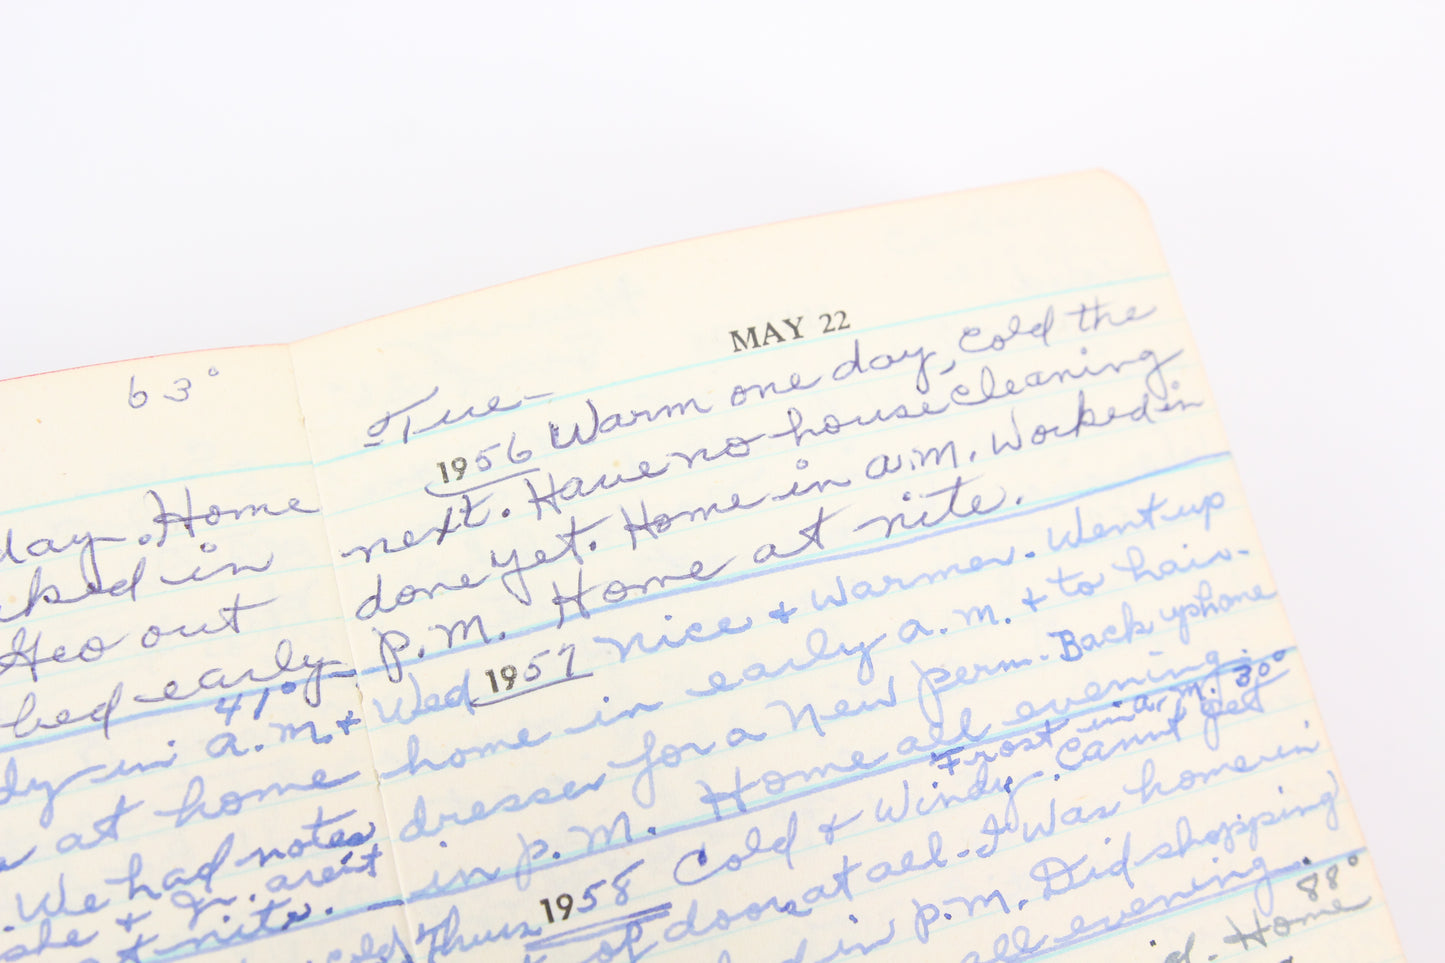 63°
day. Home
in
Geo out
bed early.
41°
in a.m. &
at home
We had notes
she & Jr. aren't
at nite.
MAY 22
Tue-
1956 Warm one day, cold the
next. Have no housecleaning
done yet. Home in a.m. Worked in
P.M. Home at nite.
Wed 1957 Nice & Warmer. Went up
home in early a.m. & to hair-
dresser for a New perm. Back uphome
in p.m. Home all evening.
Frost in a.m. 30°
Thurs 1958 Cold & Windy. Cannt get
of doors at all - I was home in
in p.m. Did shopping
all evening.
88°
Home